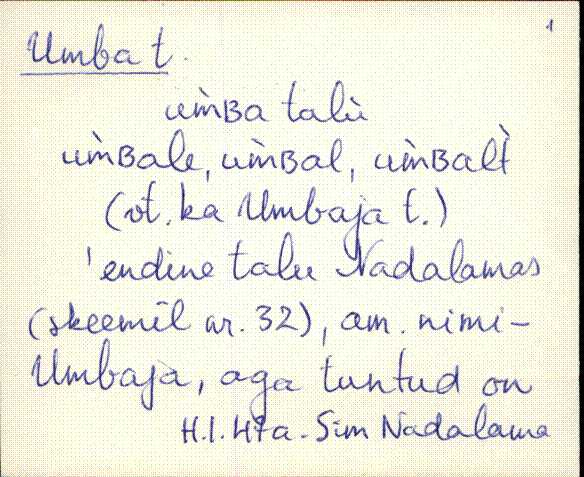 1
Umba t.
um̀ʙa talù
um̀ʙale, um̀ʙal, um̀ʙalt̀
(vt. ka Umbaja t.)
'endine talu Nadalamas
(skeemil nr. 32), am. nimi-
Umbaja, aga tuntud on
Nadalama